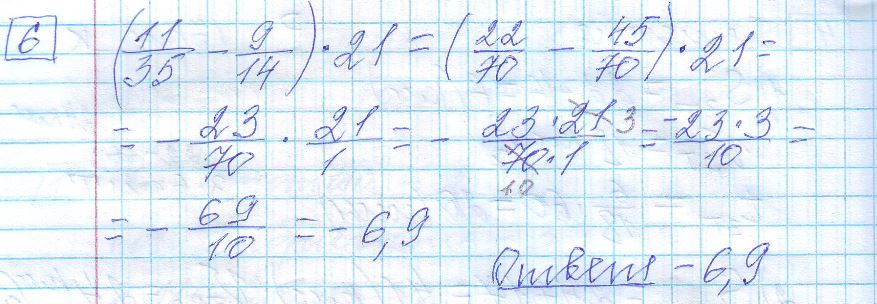 6 (11/35 - 9/14) · 21 = (22/70 - 45/70) · 21 =
= - 23/70 · 21/1 = - 23 · 21 3/70 · 1 10 = -23 · 3/10 =
= - 69/10 = - 6,9
Ответ - 6,9